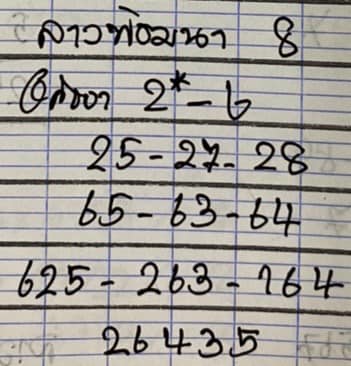 ลาวพัฒนา 8
2* - 6
25 - 27 - 28
65 - 63 - 64
625 - 263 - 164
26435